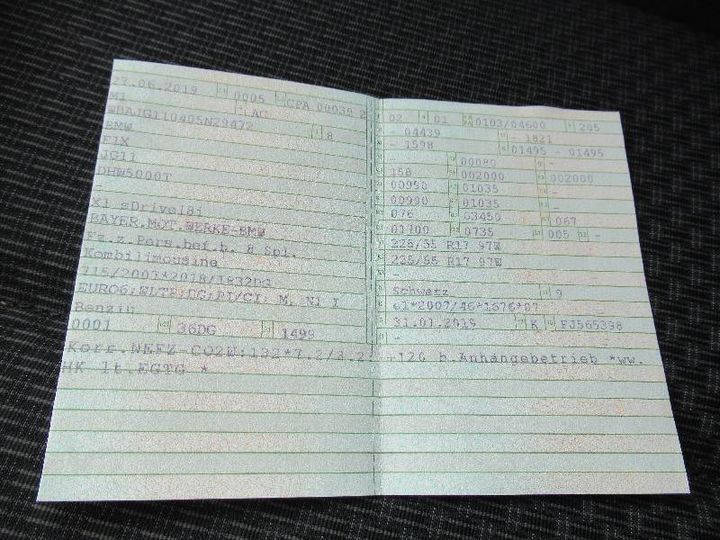 27.06.2019 0005 CPA 00039 2
M1 AC
WBAJG110405N29472 8
BMW
F1X
JG11
DHW5000T
-
X1 sDrive18i
BAYER.MOT.WERKE-BMW
Fz.z.Pers.bef.b. 8 Spl.
Kombilimousine
715/2007*2018/1832DG
EURO6;WLTP;DG;PI/CI; M, N1 I
Benzin
0001 36DG 1499
Korr.NEFZ-CO2W:132*7.2/8.2:
HK lt.EGTG *
02 01 0103/04600 205
- 04439 - 1821
- 1598 01495 - 01495
- 00080 -
158 002000 002000
00990 01035 -
00990 01035 -
076 03450 067
01700 0735 005 -
225/55 R17 97W
225/55 R17 97W
-
schwarz 9
e1*2007/46*1676*07
31.01.2019 K FJ565338
-
+120 b.Anhängebetrieb *ww.